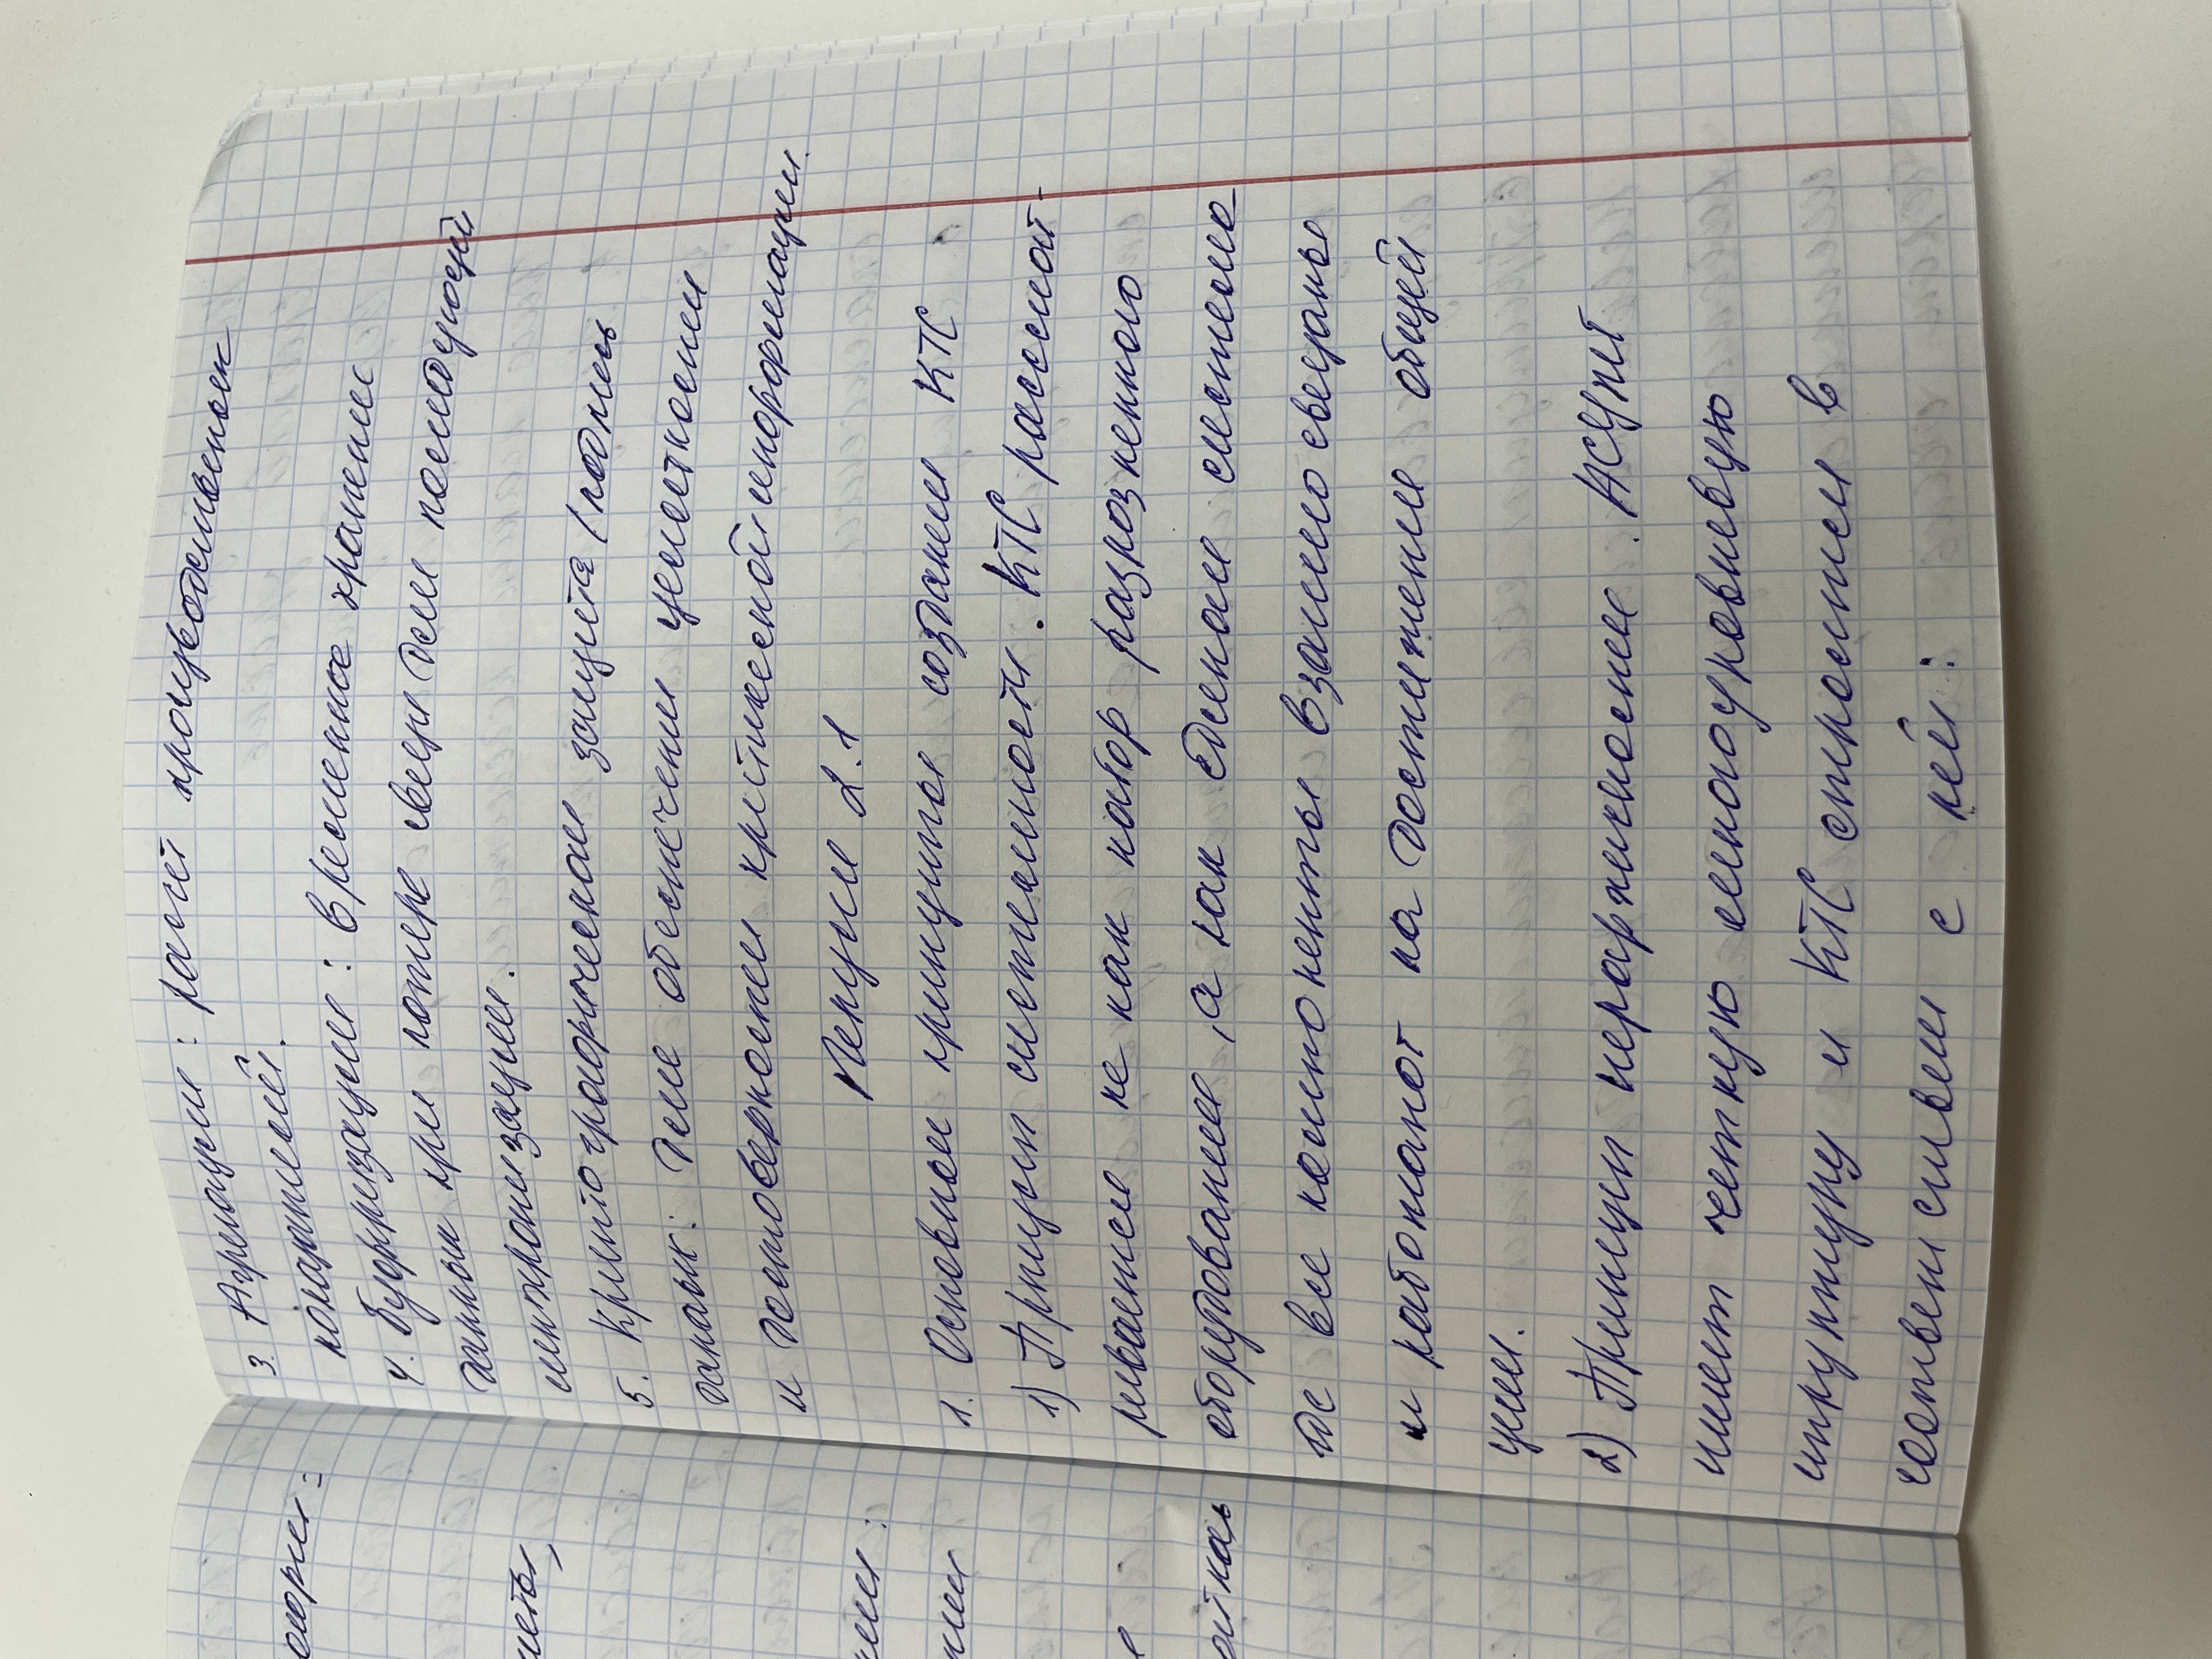 3. Агрегации: расчет производственных
показателей.
4. Буферизация: временное хранение
данных при потере связи для последующей
синхронизации.
5. Криптографическая защита / подпись
данных: для обеспечения целостности
и достоверности критической информации.
Лекция 2.1
1. Основные принципы создания КТС
1) Принцип системности. КТС рассмат-
ривается не как набор разрозненного
оборудования, а как единая система
где все компоненты взаимосвязаны
и работают на достижение общей
цели.
2) Принцип иерархичности. АСУПТ
имеет четкую многоуровневую
структуру и КТС строится в
соответствии с ней:
ности,